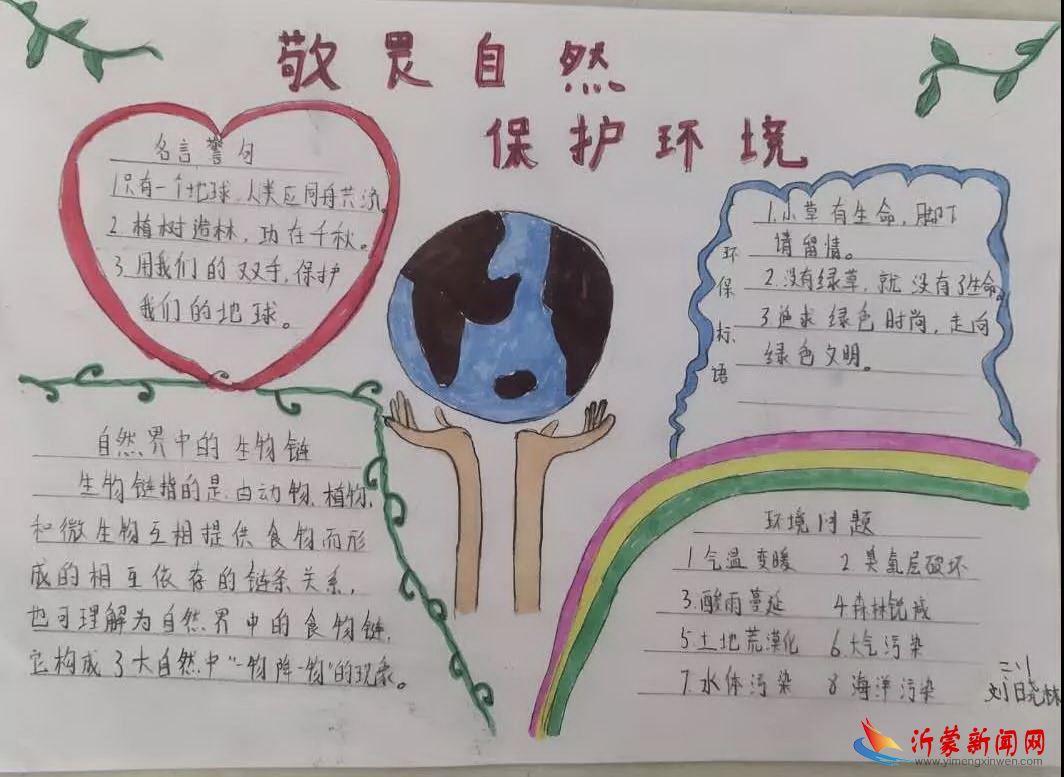 敬畏自然
保护环境
名言警句
1只有一个地球,人类应同舟共济。
2.植树造林,功在千秋。
3.用我们的双手,保护
我们的地球。
环保标语
1.小草有生命,脚下
请留情。
2.没有绿草,就没有了生命。
3.追求绿色时尚,走向
绿色文明。
自然界中的生物链
生物链指的是:由动物、植物、
和微生物互相提供食物而形
成的相互依存的链条关系,
也可理解为自然界中的食物链,
它构成了大自然中“一物降一物”的现象。
环境问题
1气温变暖 2.臭氧层破坏
3.酸雨蔓延 4.森林锐减
5.土地荒漠化 6.大气污染
7.水体污染 8海洋污染
三.1
刘晓林
沂蒙新闻网
www.yimengxinwen.com